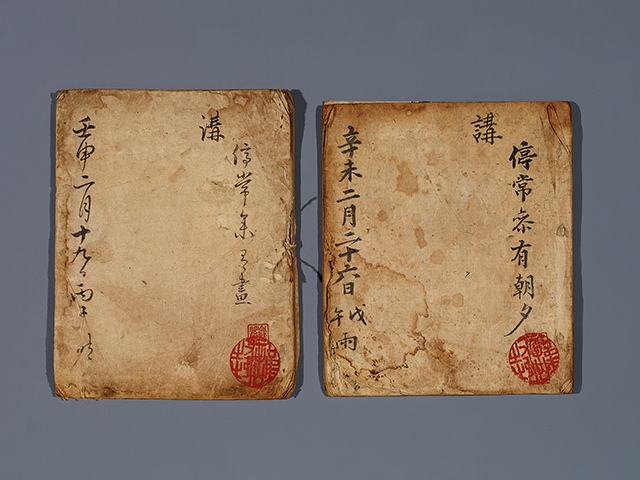 停常叅有朝夕
講
辛未二月二十六日戊午雨
停常叅有晝
講
壬申二月十九日丙午晴